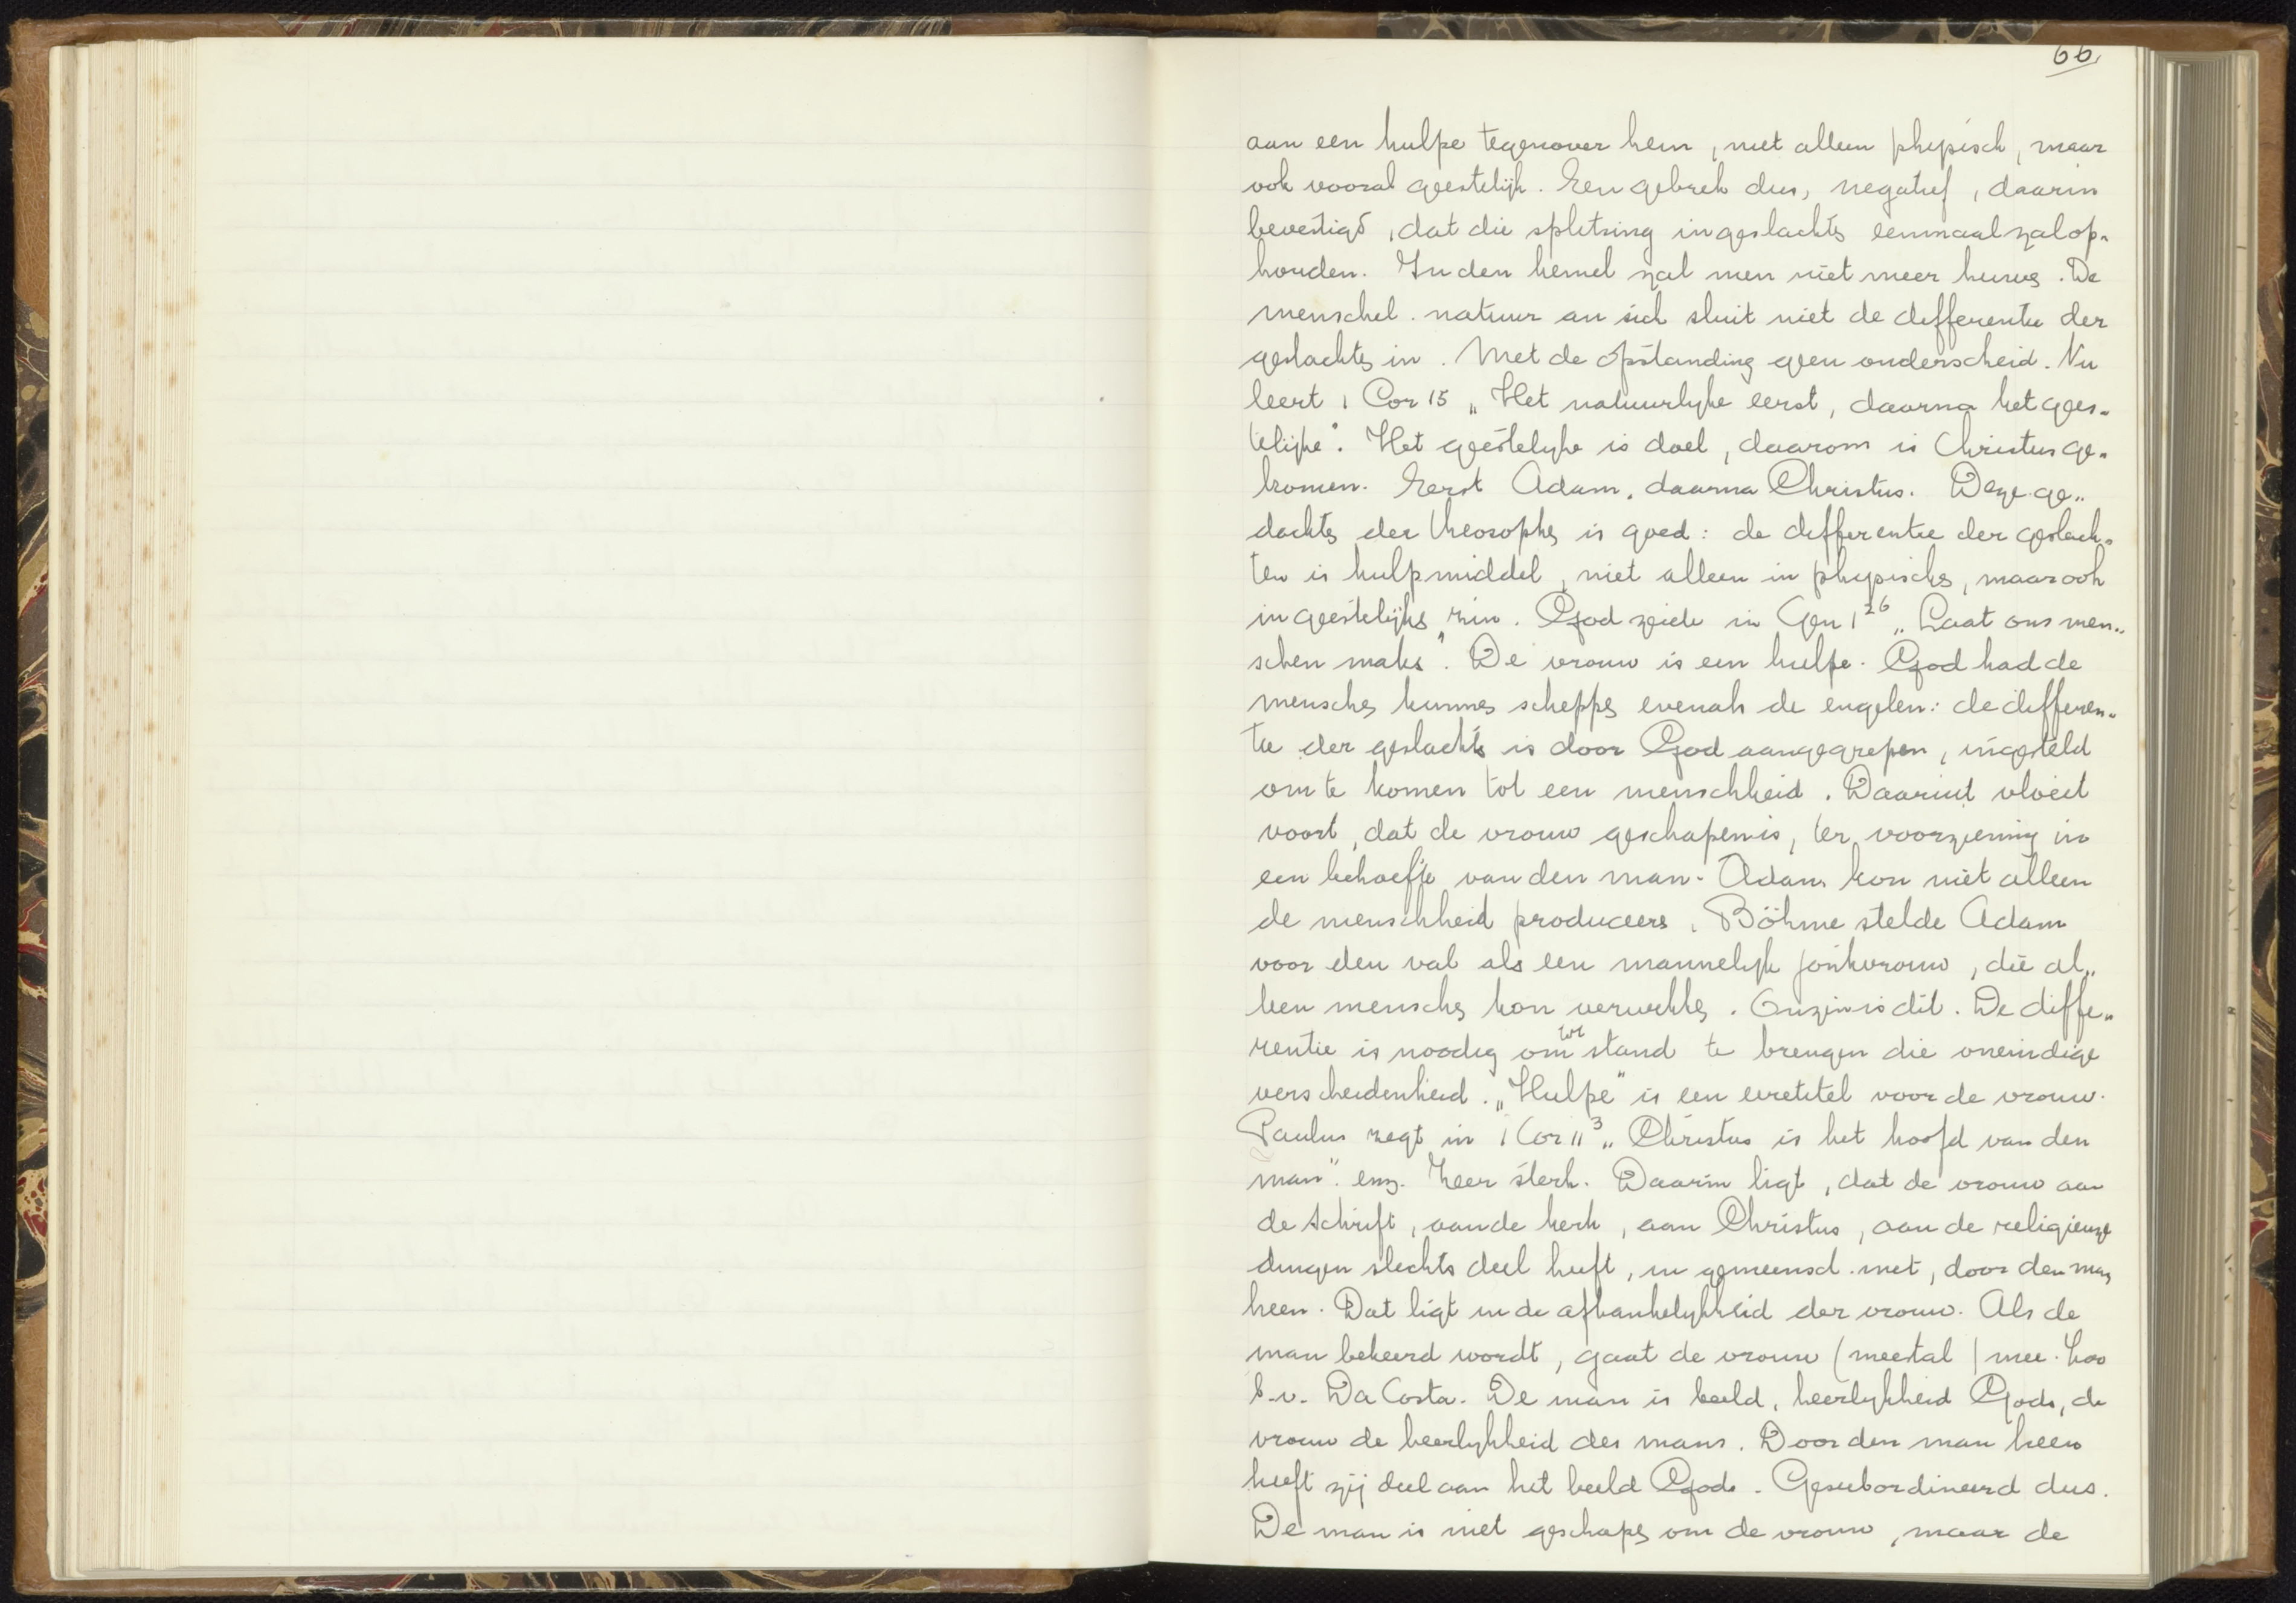 66
aan een hulpe tegenover hem, niet alleen physisch, maar
ook vooral geestelijk. Een gebrek dus, negatief, daarin
bevestigd, dat die splitsing in geslachten eenmaal zal op-
houden. In den hemel zal men niet meer huwen. De
menschel. natuur an sich sluit niet de differentie der
geslachten in. Met de opstanding geen onderscheid. Nu
leert 1 Cor 15 „Het natuurlyke eerst, daarna het gees-
telijke". Het geestelyke is doel, daarom is Christus ge-
komen. Eerst Adam, daarna Christus. Deze ge-
dachten der theosophen is goed: de differentie der geslach-
ten is hulpmiddel, niet alleen in physischen, maar ook
in geestelijken zin. God zeide in Gen 1 26 „Laat ons men-
schen maken". De vrouw is een hulpe. God had de
menschen kunnen scheppen evenals de engelen: de differen-
tie der geslachten is door God aangegrepen, ingesteld
om te komen tot een menschheid. Daaruit vloeit
voort, dat de vrouw geschapen is, ter voorziening in
een behoefte van den man. Adam kon niet alleen
de menschheid produceeren. Böhme stelde Adam
voor den val als een mannelyk jonkvrouw, die al-
leen menschen kon verwekken. Onzin is dit. De diffe-
rentie is noodig om tot stand te brengen die oneindige
verscheidenheid. „Hulpe" is een eeretitel voor de vrouw.
Paulus zegt in 1 Cor 11 3 „Christus is het hoofd van den
man". enz. Zeer sterk. Daarin ligt, dat de vrouw aan
de Schrift, aan de kerk, aan Christus, aan de religieuze
dingen slechts deel heeft, in gemeensch. met, door den man
heen. Dat ligt in de afhankelykheid der vrouw. Als de
man bekeerd wordt, gaat de vrouw (meestal) mee. Zoo
b.v. Da Costa. De man is beeld, heerlykheid Gods, de
vrouw de heerlykheid des mans. Door den man heen
heeft zij deel aan het beeld Gods. Gesubordineerd dus.
De man is niet geschapen om de vrouw, maar de